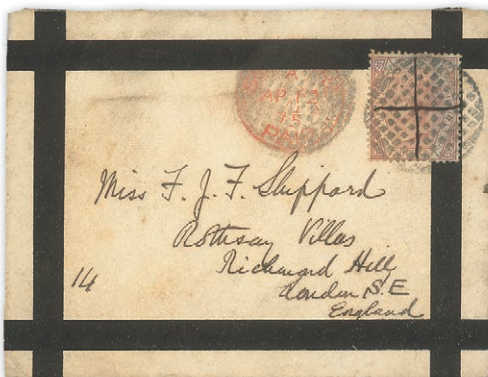 A
AP 13
75
PAID
Miss F. J. F. Sheppard
Rothsay Villas
Richmond Hill
London S.E
England
14